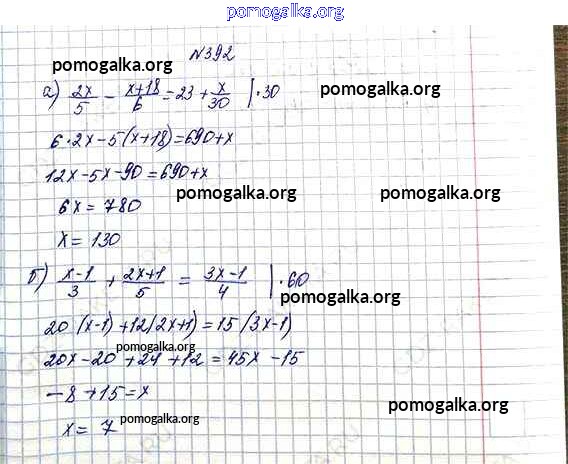 pomogalka.org
N392
pomogalka.org
pomogalka.org
а) 2x/5 - x+18/6 = 23 + x/30 | ·30
6·2x-5(x+18)=690+x
12x-5x-90=690+x
pomogalka.org
pomogalka.org
6x = 780
x = 130
б) x-1/3 + 2x+1/5 = 3x-1/4 | ·60
pomogalka.org
20(x-1)+12(2x+1)=15(3x-1)
pomogalka.org
20x-20+24+12=45x-15
-8+15=x
pomogalka.org
x = 7
pomogalka.org